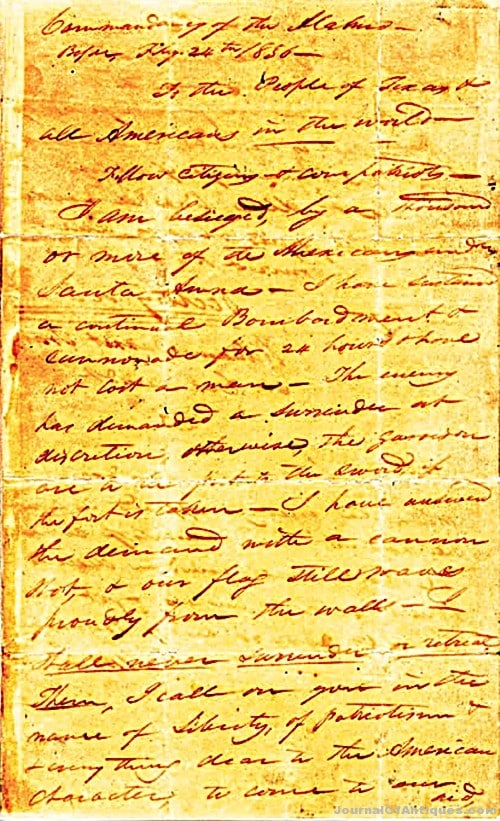 Commandancy of the Alamo—
Bejar, Feby. 24th 1836—
To the People of Texas &
all Americans in the world—
Fellow citizens & compatriots—
I am besieged, by a thousand
or more of the Mexicans under
Santa Anna— I have sustained
a continual Bombardment &
cannonade for 24 hours & have
not lost a man— The enemy
has demanded a surrender at
discretion, otherwise, the garrison
are to be put to the sword, if
the fort is taken— I have answered
the demand with a cannon
shot, & our flag still waves
proudly from the walls— I
shall never surrender or retreat
Then, I call on you in the
name of Liberty, of patriotism &
& everything dear to the American
character, to come to our aid,
JournalOfAntiques.com